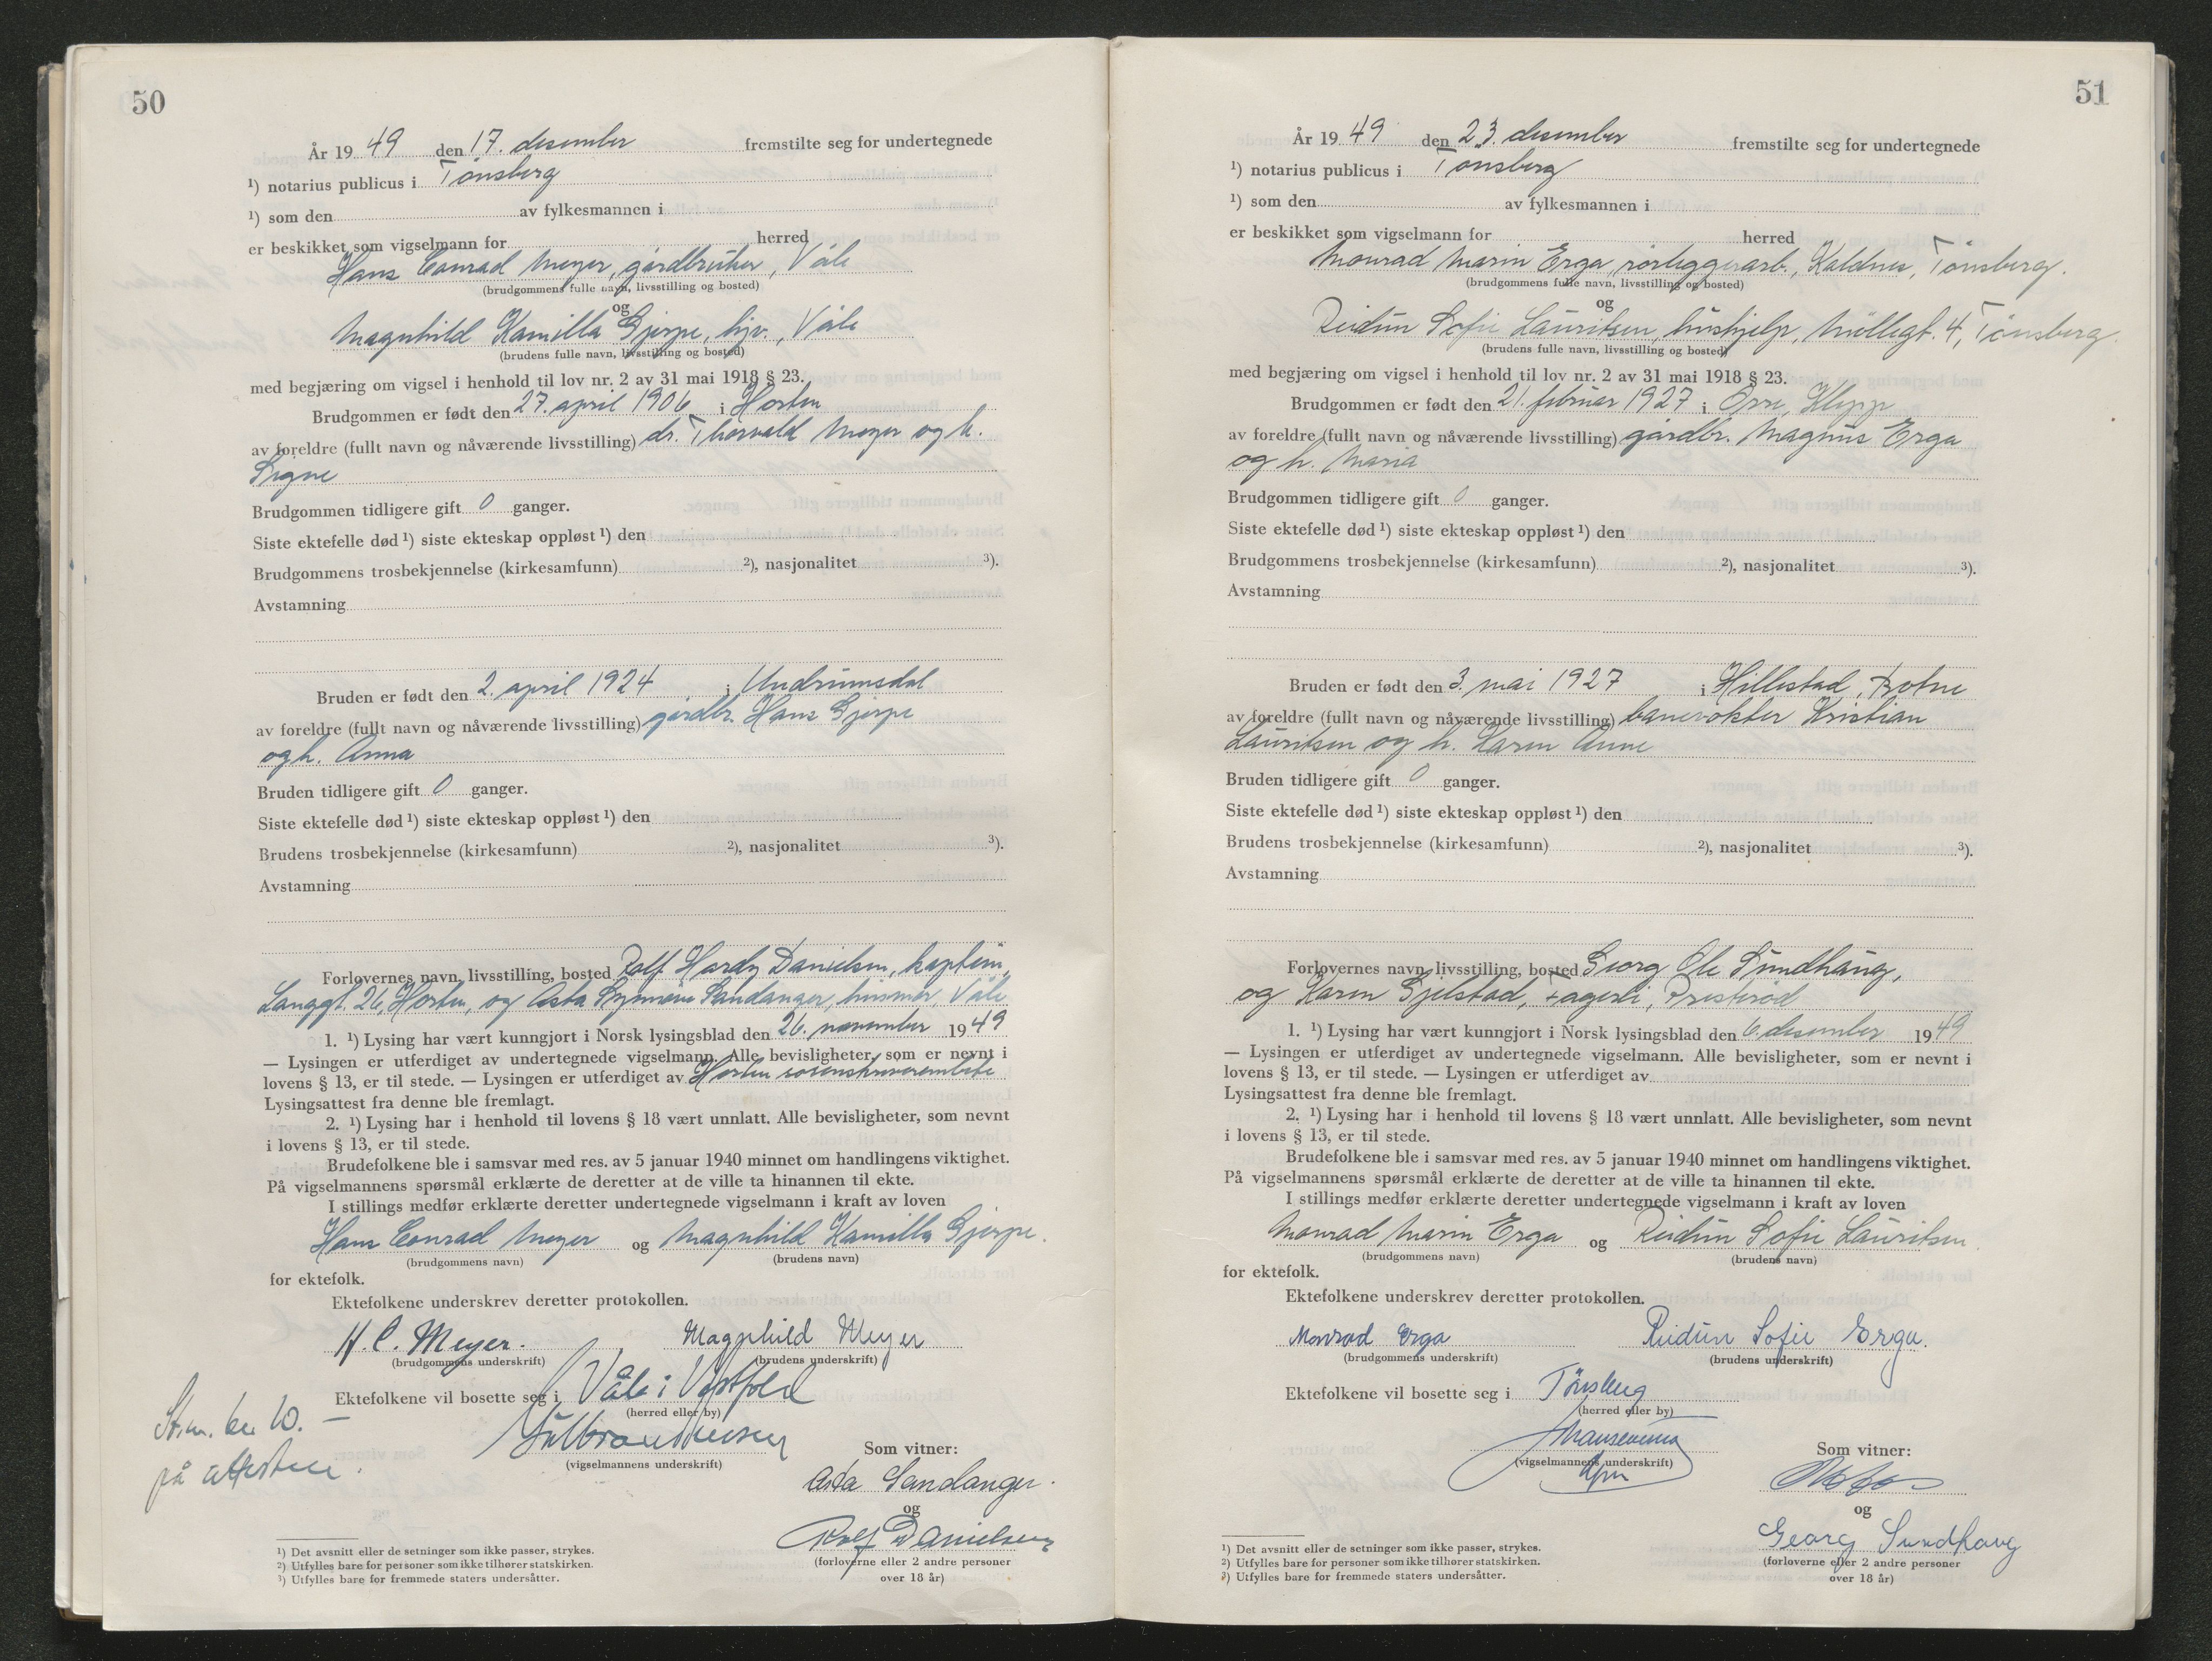 50
År 19 49 den 17. desember fremstilte seg for undertegnede
¹) notarius publicus i Tønsberg
¹) som den av fylkesmannen i
er beskikket som vigselmann for herred
Hans Conrad Meyer, gårdbruker, Våle
(brudgommens fulle navn, livsstilling og bosted)
og
Magnhild Kamilla Gjerpe, hjv., Våle
(brudens fulle navn, livsstilling og bosted)
med begjæring om vigsel i henhold til lov nr. 2 av 31 mai 1918 § 23.
Brudgommen er født den 27. april 1906 i Horten
av foreldre (fullt navn og nåværende livsstilling) dr. Thorvald Meyer og h.
Signe
Brudgommen tidligere gift 0 ganger.
Siste ektefelle død ¹) siste ekteskap oppløst ¹) den
Brudgommens trosbekjennelse (kirkesamfunn) ²), nasjonalitet ³).
Avstamning
Bruden er født den 2. april 1924 i Undrumsdal
av foreldre (fullt navn og nåværende livsstilling) gårdbr. Hans Gjerpe
og h. Anna
Bruden tidligere gift 0 ganger.
Siste ektefelle død ¹) siste ekteskap oppløst ¹) den
Brudens trosbekjennelse (kirkesamfunn) ²), nasjonalitet ³).
Avstamning
Forlovernes navn, livsstilling, bosted Rolf Hardy Danielsen, kaptein,
Langgt. 26, Horten, og Asta Synnøve Sandanger, husmor, Våle
1. ¹) Lysing har vært kunngjort i Norsk lysingsblad den 26. november 1949
— Lysingen er utferdiget av undertegnede vigselmann. Alle bevisligheter, som er nevnt i
lovens § 13, er til stede. — Lysingen er utferdiget av Horten sorenskriverembete
Lysingsattest fra denne ble fremlagt.
2. ¹) Lysing har i henhold til lovens § 18 vært unnlatt. Alle bevisligheter, som nevnt
i lovens § 13, er til stede.
Brudefolkene ble i samsvar med res. av 5 januar 1940 minnet om handlingens viktighet.
På vigselmannens spørsmål erklærte de deretter at de ville ta hinannen til ekte.
I stillings medfør erklærte deretter undertegnede vigselmann i kraft av loven
Hans Conrad Meyer og Magnhild Kamilla Gjerpe.
(brudgommens navn) (brudens navn)
for ektefolk.
Ektefolkene underskrev deretter protokollen.
H. C. Meyer. Magnhild Meyer
(brudgommens underskrift) (brudens underskrift)
Ektefolkene vil bosette seg i Våle i Vestfold
(herred eller by)
(vigselmannens underskrift)
10. —
på attesten.
Som vitner:
Asta Sandanger.
og
Rolf Danielsen
(forloverne eller 2 andre personer
over 18 år)
¹) Det avsnitt eller de setninger som ikke passer, strykes.
²) Utfylles bare for personer som ikke tilhører statskirken.
³) Utfylles bare for fremmede staters undersåtter.
51
År 19 49 den 23. desember fremstilte seg for undertegnede
¹) notarius publicus i Tønsberg
¹) som den av fylkesmannen i
er beskikket som vigselmann for herred
Monrad Marin Erga, rørleggerarb., Kaldnes, Tønsberg.
(brudgommens fulle navn, livsstilling og bosted)
og
Reidun Sofie Lauritsen, hushjelp, Møllegt. 4, Tønsberg.
(brudens fulle navn, livsstilling og bosted)
med begjæring om vigsel i henhold til lov nr. 2 av 31 mai 1918 § 23.
Brudgommen er født den 21. februar 1927 i Orre, Klepp
av foreldre (fullt navn og nåværende livsstilling) gårdbr. Magnus Erga
og h. Maria
Brudgommen tidligere gift 0 ganger.
Siste ektefelle død ¹) siste ekteskap oppløst ¹) den
Brudgommens trosbekjennelse (kirkesamfunn) ²), nasjonalitet ³).
Avstamning
Bruden er født den 3. mai 1927 i Hillestad, Botne
av foreldre (fullt navn og nåværende livsstilling) banevokter Kristian
Lauritsen og h. Karen Anne
Bruden tidligere gift 0 ganger.
Siste ektefelle død ¹) siste ekteskap oppløst ¹) den
Brudens trosbekjennelse (kirkesamfunn) ²), nasjonalitet ³).
Avstamning
Forlovernes navn, livsstilling, bosted Georg Ole Sundhaug,
og Karen Gjelstad, Fagerli, Presterød
1. ¹) Lysing har vært kunngjort i Norsk lysingsblad den 6. desember 1949
— Lysingen er utferdiget av undertegnede vigselmann. Alle bevisligheter, som er nevnt i
lovens § 13, er til stede. — Lysingen er utferdiget av
Lysingsattest fra denne ble fremlagt.
2. ¹) Lysing har i henhold til lovens § 18 vært unnlatt. Alle bevisligheter, som nevnt
i lovens § 13, er til stede.
Brudefolkene ble i samsvar med res. av 5 januar 1940 minnet om handlingens viktighet.
På vigselmannens spørsmål erklærte de deretter at de ville ta hinannen til ekte.
I stillings medfør erklærte deretter undertegnede vigselmann i kraft av loven
Monrad Marin Erga og Reidun Sofie Lauritsen.
(brudgommens navn) (brudens navn)
for ektefolk.
Ektefolkene underskrev deretter protokollen.
Monrad Erga Reidun Sofie Erga.
(brudgommens underskrift) (brudens underskrift)
Ektefolkene vil bosette seg i Tønsberg
(herred eller by)
(vigselmannens underskrift)
Som vitner:
og
Georg Sundhaug
(forloverne eller 2 andre personer
over 18 år)
¹) Det avsnitt eller de setninger som ikke passer, strykes.
²) Utfylles bare for personer som ikke tilhører statskirken.
³) Utfylles bare for fremmede staters undersåtter.